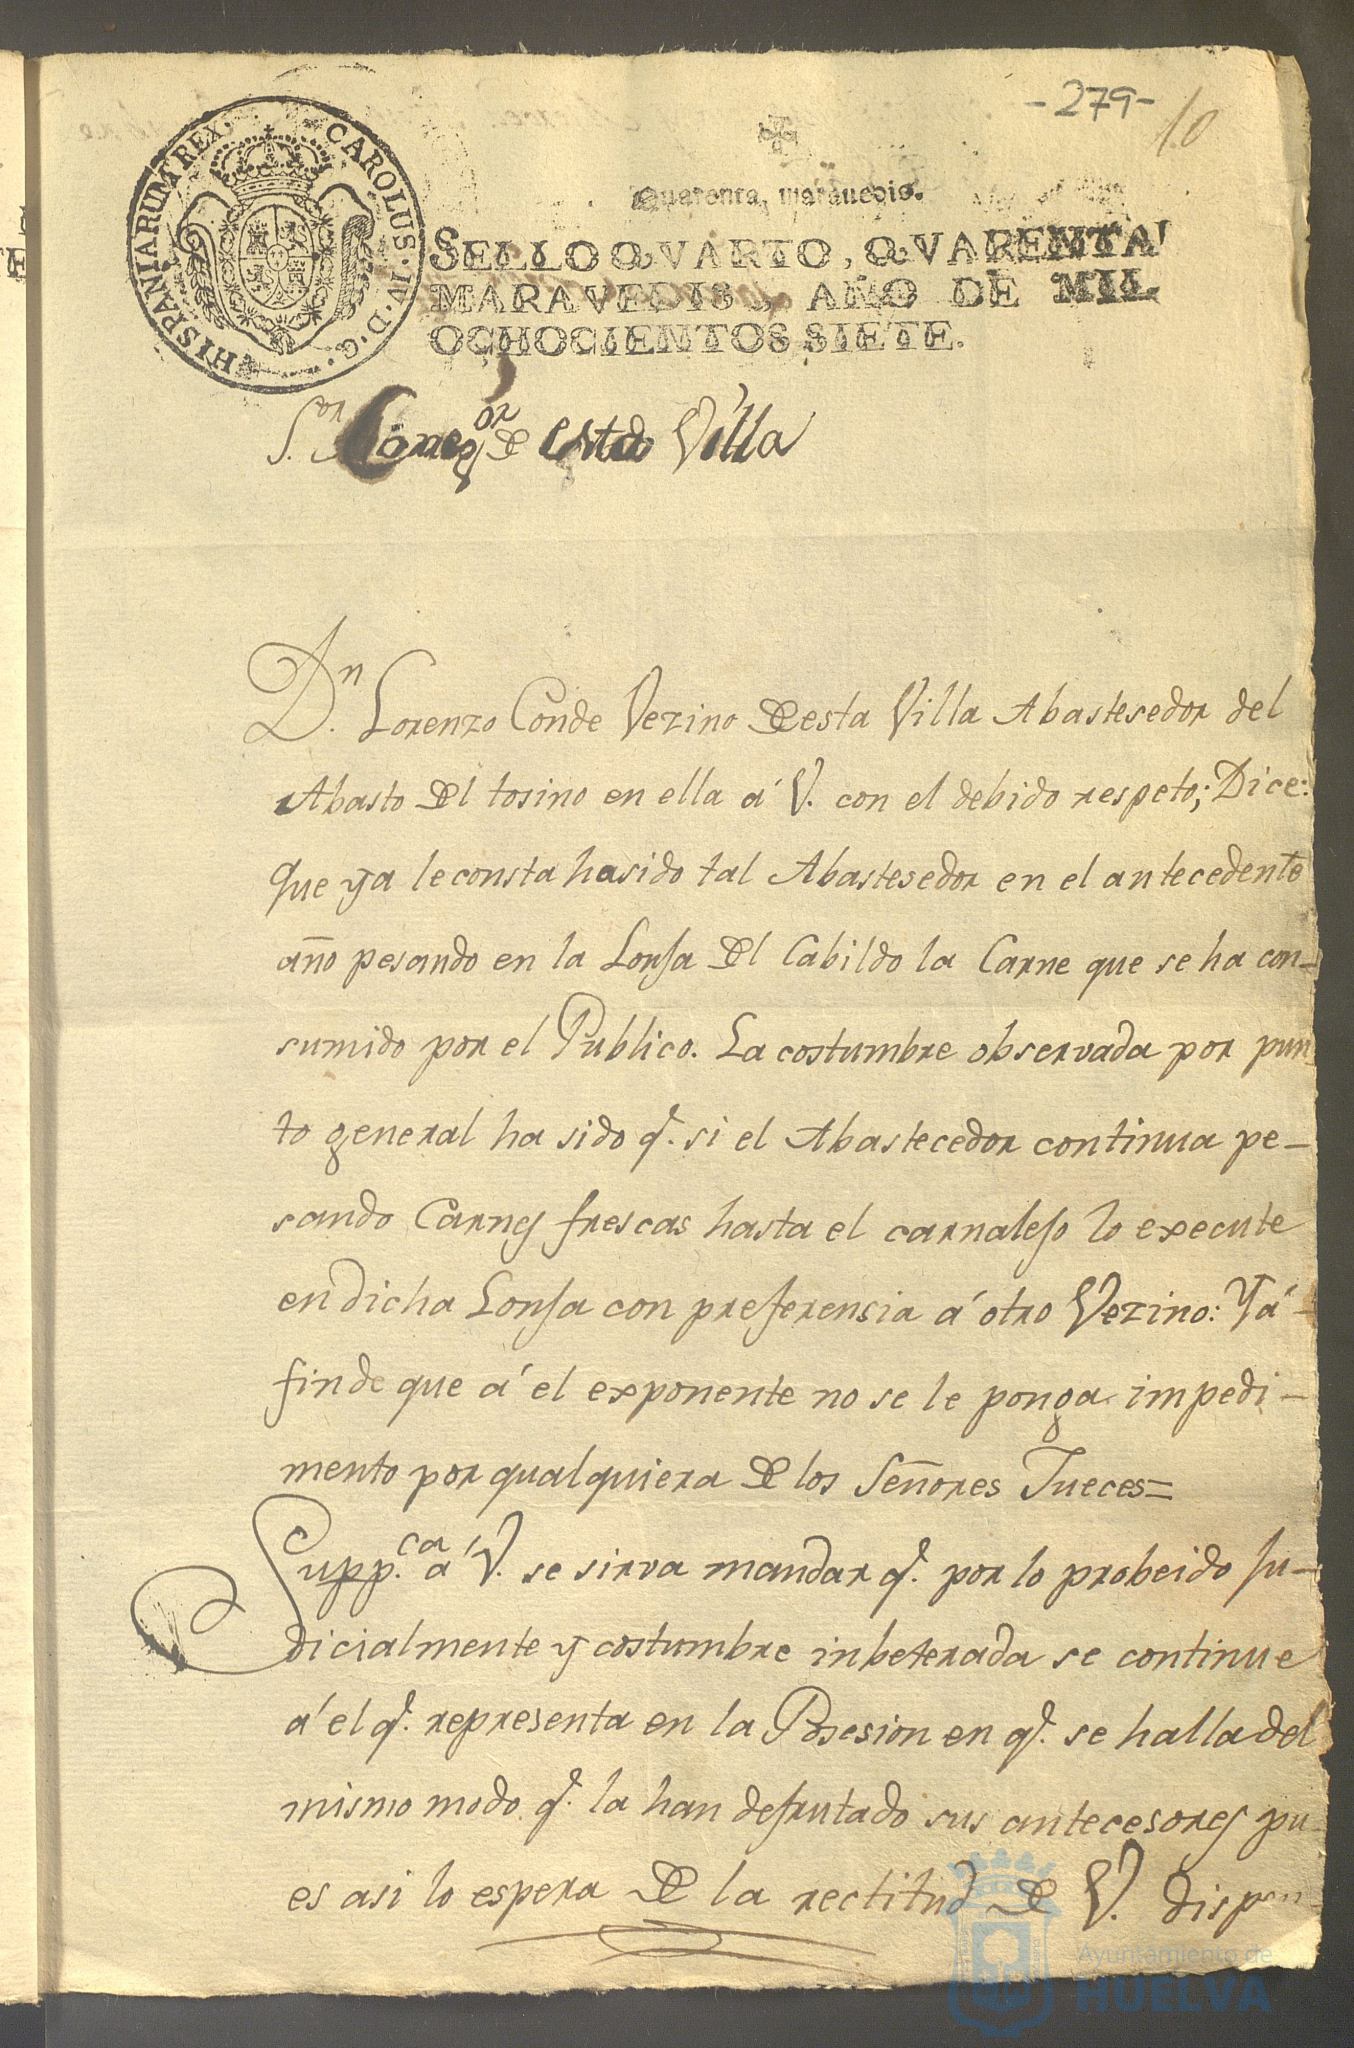 -279- 10
Quarenta maravedis.
HISPANIARUM REX. CAROLUS·IV·D·G·
SELLO QVARTO, QVARENTA
MARAVEDIS, AÑO DE MIL
OCHOCIENTOS SIETE.
S.or Correg.or de esta Villa
D.n Lorenzo Conde Vezino de esta Villa Abastesedor del
Abasto del tosino en ella á V. con el debido respeto; Dice:
Que ya le consta ha sido tal Abastesedor en el antecedente
año pesando en la Lonja del Cabildo la Carne que se ha con-
sumido por el Publico. La costumbre observada por pun
to general ha sido q.e si el Abastecedor continua pe-
sando Carnes frescas hasta el carnalejo lo execute
en dicha Lonja con preferensia á otro Vezino: Y á-
fin de que á el exponente no se le ponga impedi-
mento por qualquiera de los Señores Jueces=
Supp.ca á V. se sirva mandar q.e por lo probeido Ju-
dicialmente y costumbre inbeterada se continue
á el q.e representa en la Posesion en q.e se halla del
mismo modo q.e la han defrutado sus antecesores pu-
es asi lo espera de la rectitud de V.
Ayuntamiento de
HUELVA